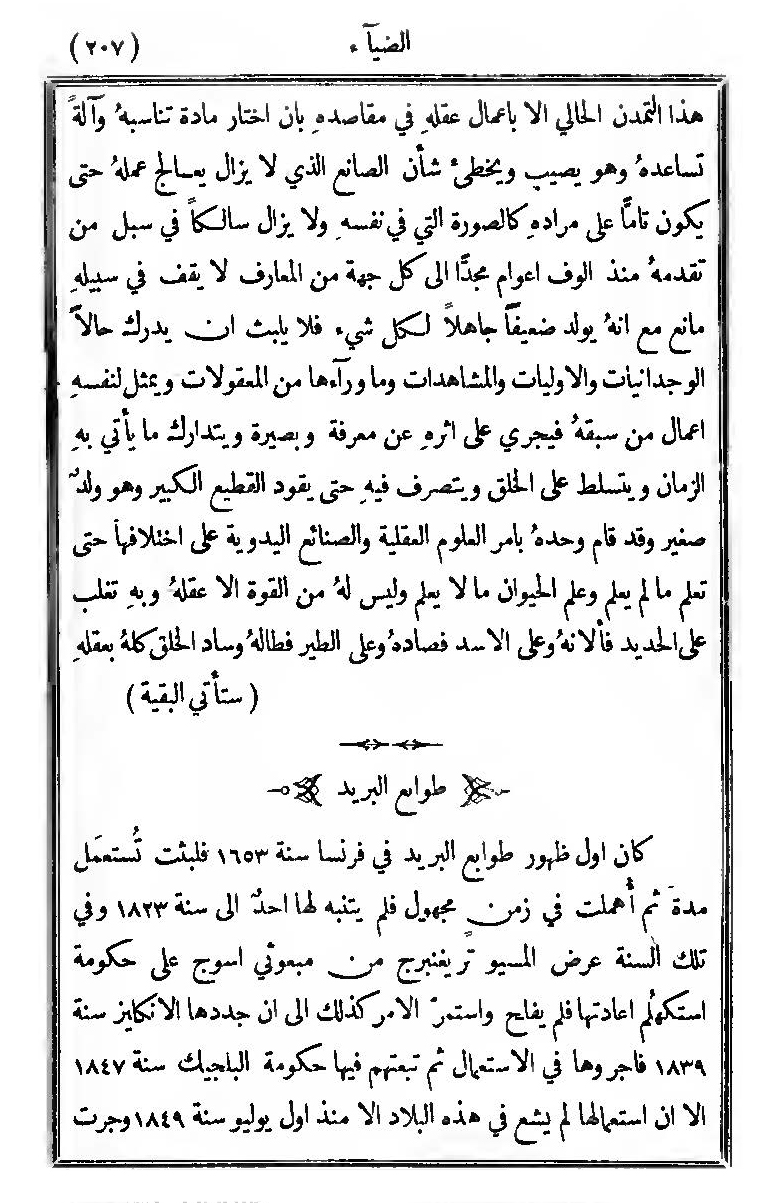 الضيآء
(٢٠٧)
هذا التمدن الحالي الا باعمال عقلهِ في مقاصدهِ بان اختار مادة تناسبهُ وآلةً
تساعدهُ وهو يصيب ويخطئ شأن الصانع الذي لا يزال يعالج عملهُ حتى
يكون تامًّا على مرادهِ كالصورة التي في نفسهِ ولا يزال سالكاً في سبل من
تقدمهُ منذ الوف اعوام مجدًّا الى كل جهة من المعارف لا يقف في سبيلهِ
مانع مع انهُ يولد ضعيفاً جاهلاً لكل شيء فلا يلبث ان يدرك حالاً
الوجدانيات والاوليات والمشاهدات وما ورآءها من المعقولات ويمثل لنفسهِ
اعمال من سبقهُ فيجري على اثرهِ عن معرفة وبصيرة ويتدارك ما يأتي بهِ
الزمان ويتسلط على الخلق ويتصرف فيهِ حتى يقود القطيع الكبير وهو ولدٌ
صغير وقد قام وحدهُ بامر العلوم العقلية والصنائع اليدوية على اختلافها حتى
تعلم ما لم يعلم وعلم الحيوان ما لا يعلم وليس لهُ من القوة الا عقلهُ وبهِ تغلب
على الحديد فألانهُ وعلى الاسد فصادهُ وعلى الطير فطالهُ وساد الخلق كلهُ بعقلهِ
(ستأتي البقية)
طوابع البريد
كان اول ظهور طوابع البريد في فرنسا سنة ١٦٥٣ فلبثت تُستعمَل
مدةً ثم أُهملت في زمنٍ مجهول فلم يتنبه لها احدٌ الى سنة ١٨٢٣ وفي
تلك السنة عرض المسيو تريغنبرج من مبعوثي اسوج على حكومة
استكهلم اعادتها فلم يفلح واستمرّ الامر كذلك الى ان جددها الانكليز سنة
١٨٣٩ فاجروها في الاستعمال ثم تبعتهم فيها حكومة البلجيك سنة ١٨٤٧
الا ان استعمالها لم يشع في هذه البلاد الا منذ اول يوليو سنة ١٨٤٩ وجرت